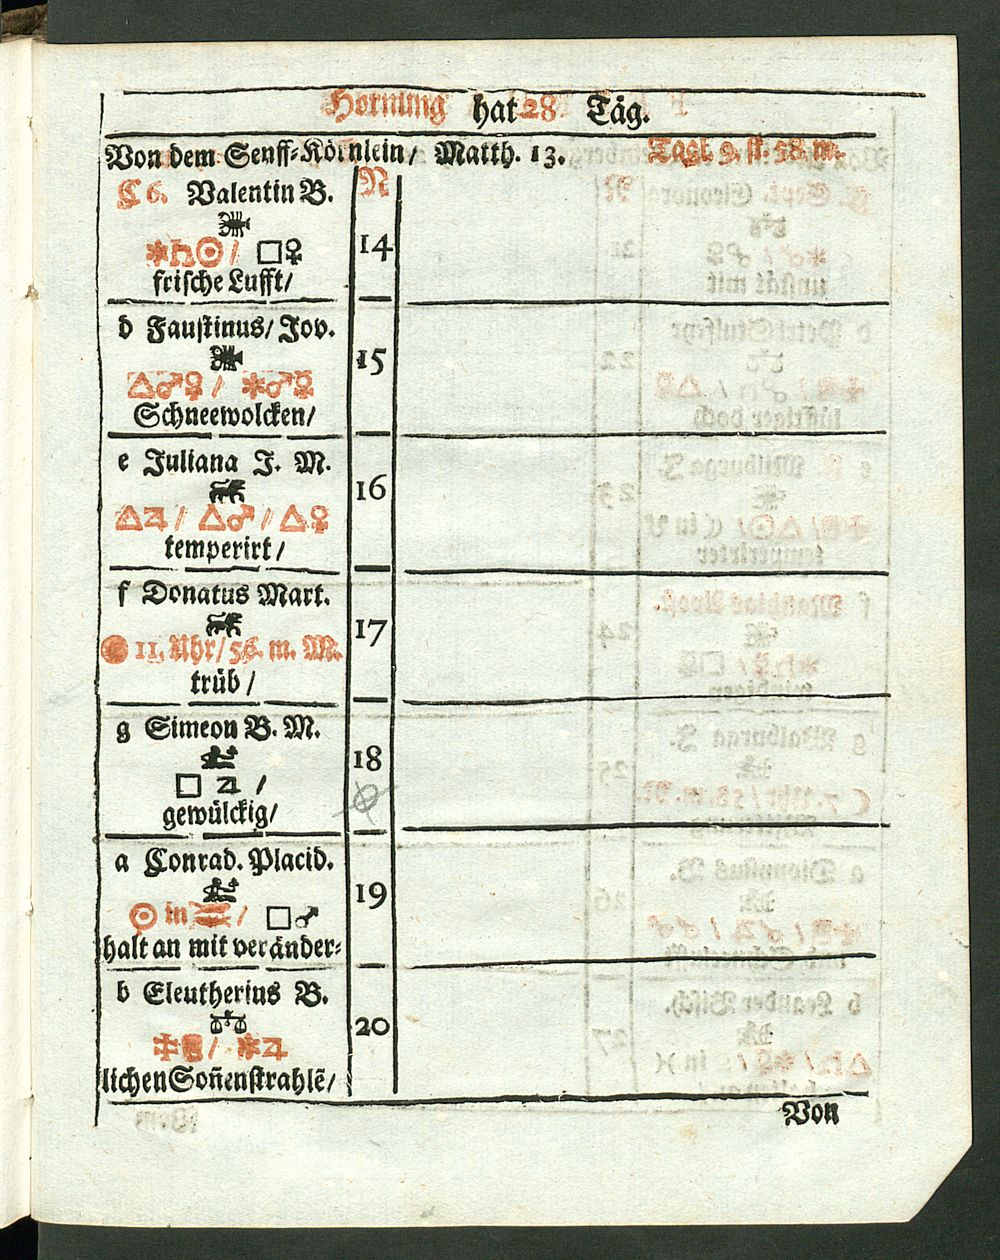 Hornung hat 28 Täg.
Von dem Senff-Körnlein / Matth. 13. Tagl. 9. st. 58. m.
C 6. Valentin B. N
⚹♄☉ / □♀ 14
frische Lufft /
d Faustinus / Jov.
△♂♀ / ⚹♂☿ 15
Schneewolcken /
e Juliana J. M.
△♃ / △♂ / △♀ 16
temperirt /
f Donatus Mart.
11. Uhr / 56. m. M. 17
trüb /
g Simeon B. M.
□ ♃ / 18
gewülckig /
a Conrad. Placid.
☉ in ♓ / □♂ 19
halt an mit veränder-
b Eleutherius B.
♎
⚹♃ 20
lichen Soñenstrahlẽ /
Von